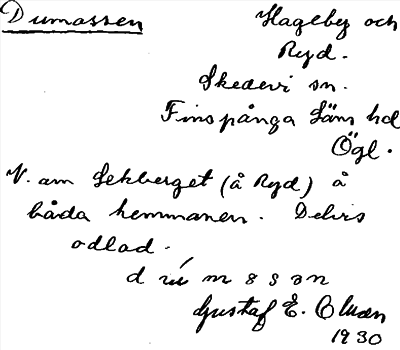 Dumassen Hageby och
Ryd.
Skedevi sn.
Finspånga Läns hd
Ögl.
V. om Lekberget (å Ryd) å
båda hemmanen. Delvis
odlad.
Gustaf E.
1930